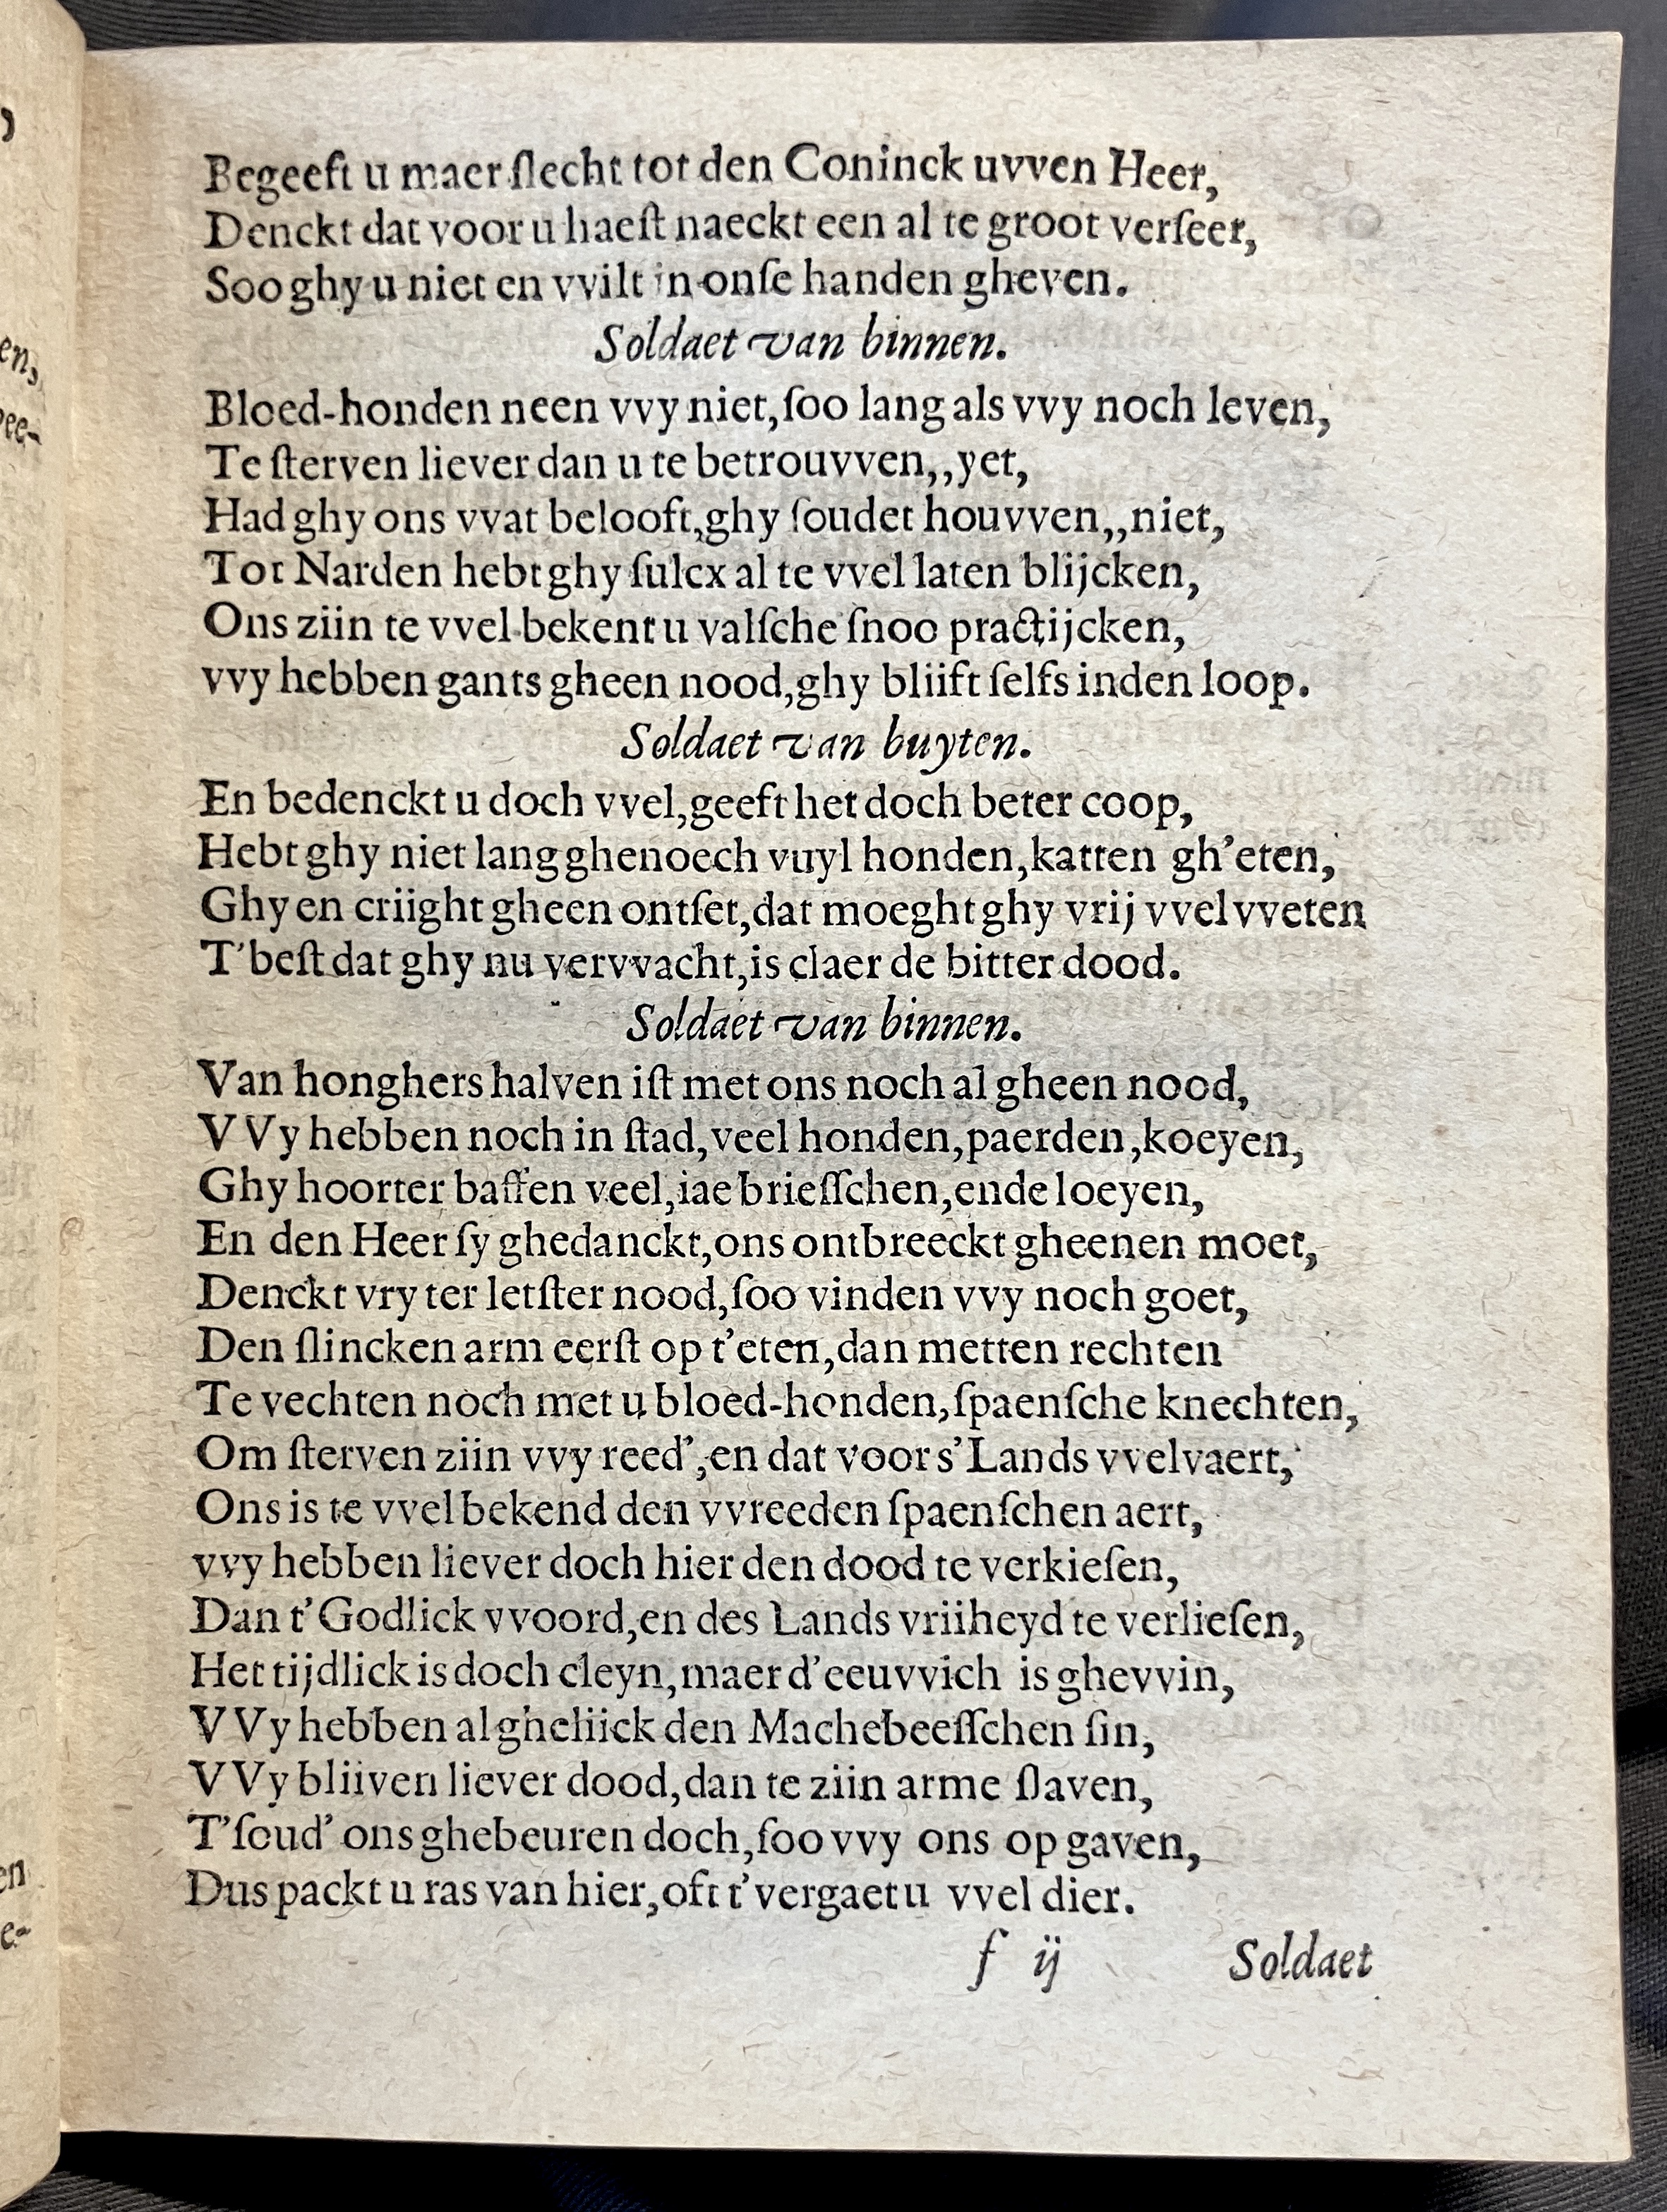 Begeeft u maer ſlecht tot den Coninck uvven Heer,
Denckt dat voor u haeſt naeckt een al te groot verſeer,
Soo ghy u niet en vvilt in onſe handen gheven.
Soldaet van binnen.
Bloed-honden neen vvy niet, ſoo lang als vvy noch leven,
Te ſterven liever dan u te betrouvven,,yet,
Had ghy ons vvat belooft, ghy ſoudet houvven,,niet,
Tot Narden hebt ghy ſulcx al te vvel laten blijcken,
Ons ziin te vvel bekent u valſche ſnoo practijcken,
vvy hebben gants gheen nood, ghy bliift ſelfs inden loop.
Soldaet van buyten.
En bedenckt u doch vvel, geeft het doch beter coop,
Hebt ghy niet lang ghenoech vuyl honden, katten gh'eten,
Ghy en criight gheen ontſet, dat moeght ghy vrij vvel vveten
T'beſt dat ghy nu vervvacht, is claer de bitter dood.
Soldaet van binnen.
Van honghers halven iſt met ons noch al gheen nood,
VVy hebben noch in ſtad, veel honden, paerden, koeyen,
Ghy hoorter baſſen veel, iae brieſſchen, ende loeyen,
En den Heer ſy ghedanckt, ons ontbreeckt gheenen moet,
Denckt vry ter letſter nood, ſoo vinden vvy noch goet,
Den ſlincken arm eerſt op t'eten, dan metten rechten
Te vechten noch met u bloed-honden, ſpaenſche knechten,
Om ſterven ziin vvy reed', en dat voor s'Lands vvelvaert,
Ons is te vvel bekend den vvreeden ſpaenſchen aert,
vvy hebben liever doch hier den dood te verkieſen,
Dan t'Godlick vvoord, en des Lands vriiheyd te verlieſen,
Het tijdlick is doch cleyn, maer d'eeuvvich is ghevvin,
VVy hebben al gheliick den Machebeeſſchen ſin,
VVy bliiven liever dood, dan te ziin arme ſlaven,
T'ſoud' ons ghebeuren doch, ſoo vvy ons op gaven,
Dus packt u ras van hier, oft t'vergaet u vvel dier.
f ij Soldaet